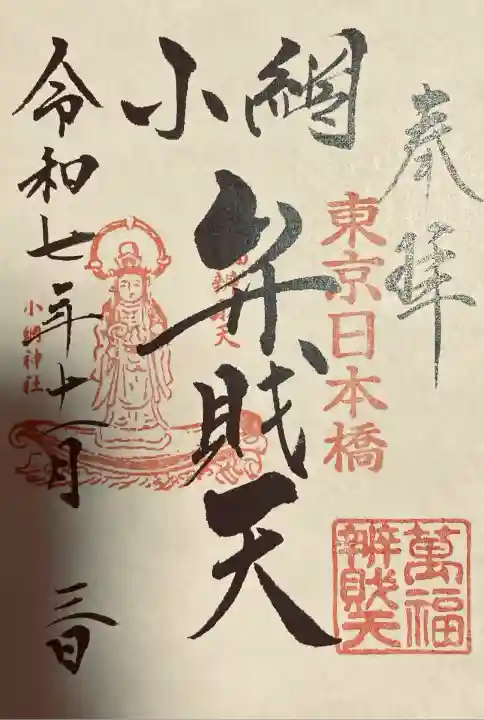 奉拝
東京日本橋
萬福
辨財天
小網
弁財天
小網神社
令和七年十一月三日